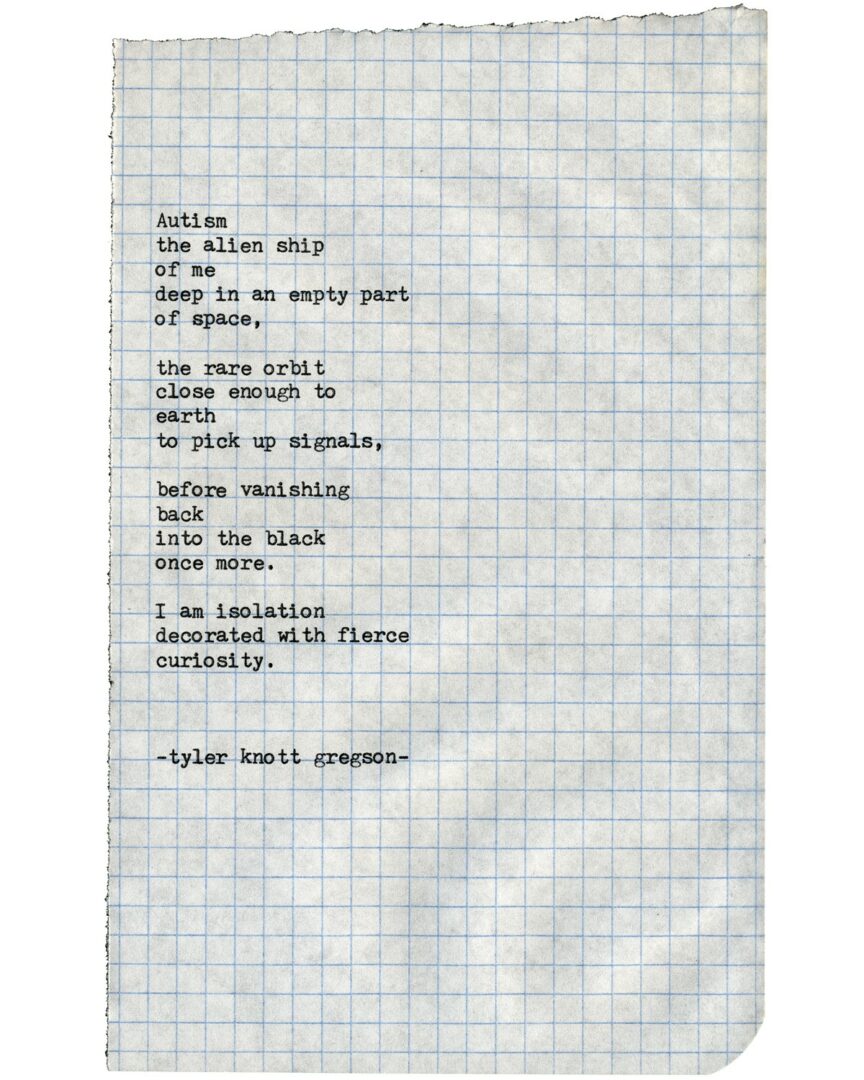 Autism
the alien ship
of me
deep in an empty part
of space,
the rare orbit
close enough to
earth
to pick up signals,
before vanishing
back
into the black
once more.
I am isolation
decorated with fierce
curiosity.
-tyler knott gregson-